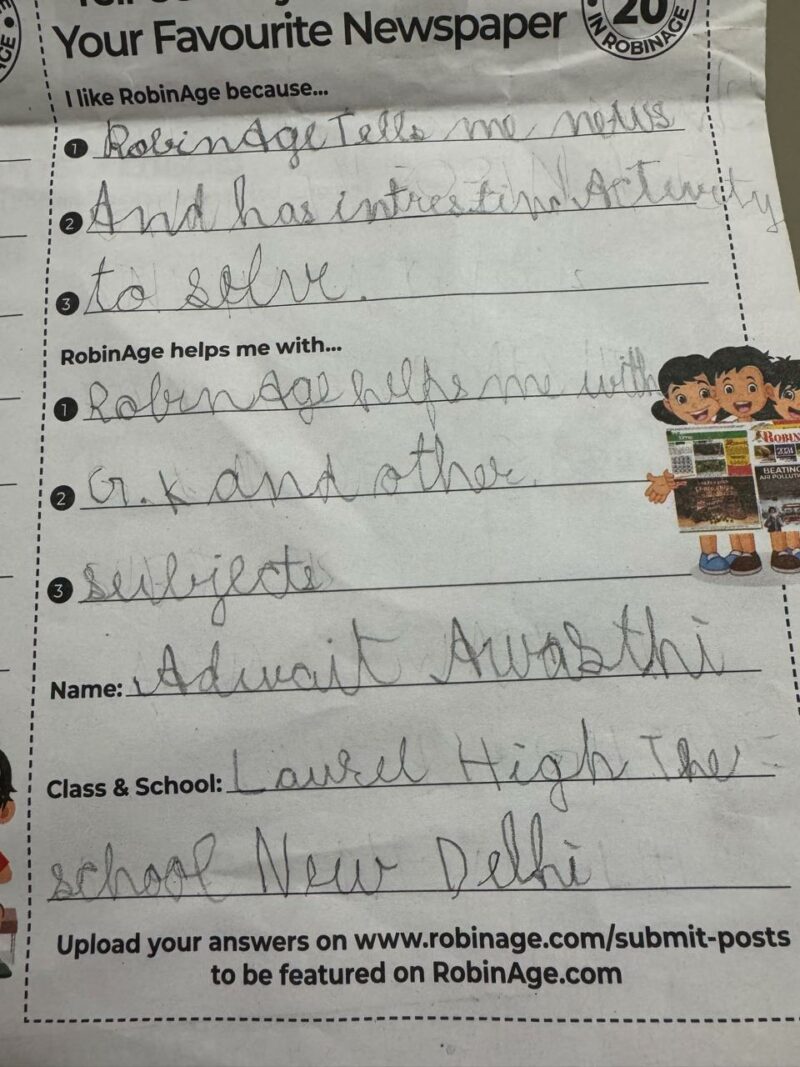 Your Favourite Newspaper
20
IN ROBINAGE
I like RobinAge because...
1 RobinAge Tells me news
2 And has intrestind Activity
3 to solve.
RobinAge helps me with...
1 RobinAge helps me with
2 G.K and other
3 subjects
Name: Adwait Awasthi
Class & School: Laurel High The
school New Delhi
Upload your answers on www.robinage.com/submit-posts
to be featured on RobinAge.com
ROBIN
2024
BEATING
AIR POLLUTI